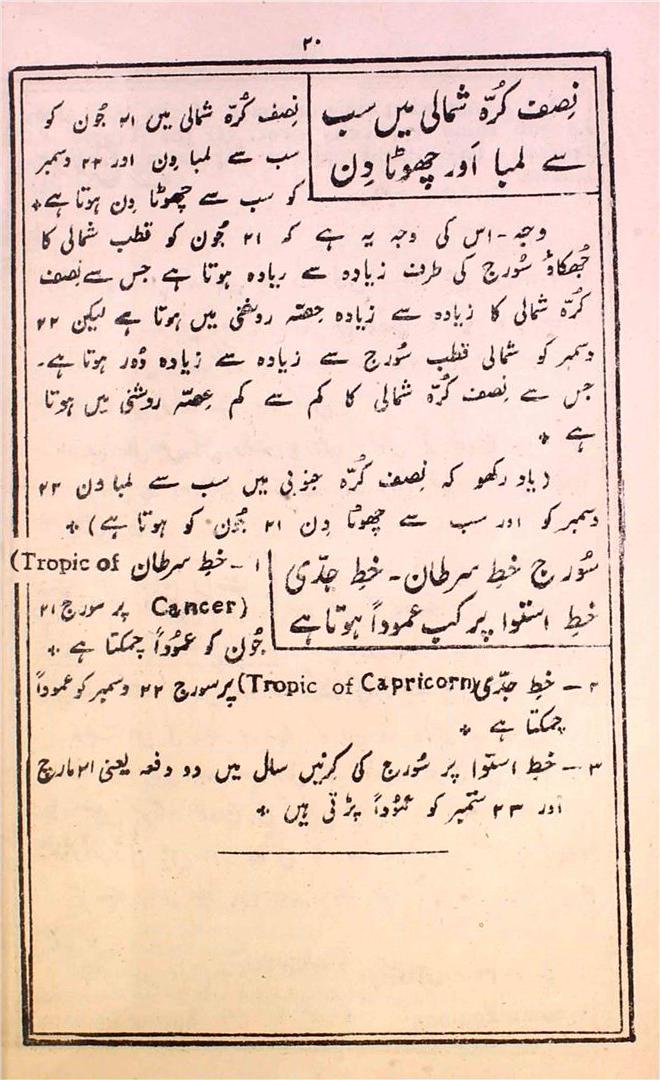 ۲۰
نِصف کُرّہ شمالی میں سب
سے لمبا اَور چھوٹا دِن
نِصف کُرّہ شمالی میں ۲۱ جُون کو
سب سے لمبا دِن اور ۲۲ دسمبر
کو سب سے چھوٹا دِن ہوتا ہے *
وجہ - اس کی وجہ یہ ہے کہ ۲۱ جُون کو قطب شمالی کا
جُھکاؤ سُورج کی طرف زیادہ سے زیادہ ہوتا ہے جس سے نِصف
کُرّہ شمالی کا زیادہ سے زیادہ حِصّہ روشنی میں ہوتا ہے لیکن ۲۲
دسمبر کو شمالی قطب سُورج سے زیادہ سے زیادہ دُور ہوتا ہے۔
جس سے نِصف کُرّہ شمالی کا کم سے کم حِصّہ روشنی میں ہوتا
ہے *
(یاد رکھو کہ نِصف کُرّہ جنوبی میں سب سے لمبا دن ۲۲
دسمبر کو اور سب سے چھوٹا دِن ۲۱ جُون کو ہوتا ہے) *
سُورج خطِ سرطان - خطِ جدّی
خطِ استوا پر کب عموداً ہوتا ہے
۱ - خطِ سرطان (Tropic of
Cancer) پر سورج ۲۱
جُون کو عمُوداً چمکتا ہے *
۲ - خطِ جدّی (Tropic of Capricorn) پر سورج ۲۲ دسمبر کو عموداً
چمکتا ہے *
۳ - خطِ استوا پر سُورج کی کِرنیں سال میں دو دفعہ یعنی ۲۱ مارچ
اور ۲۳ ستمبر کو عمُوداً پڑتی ہیں *